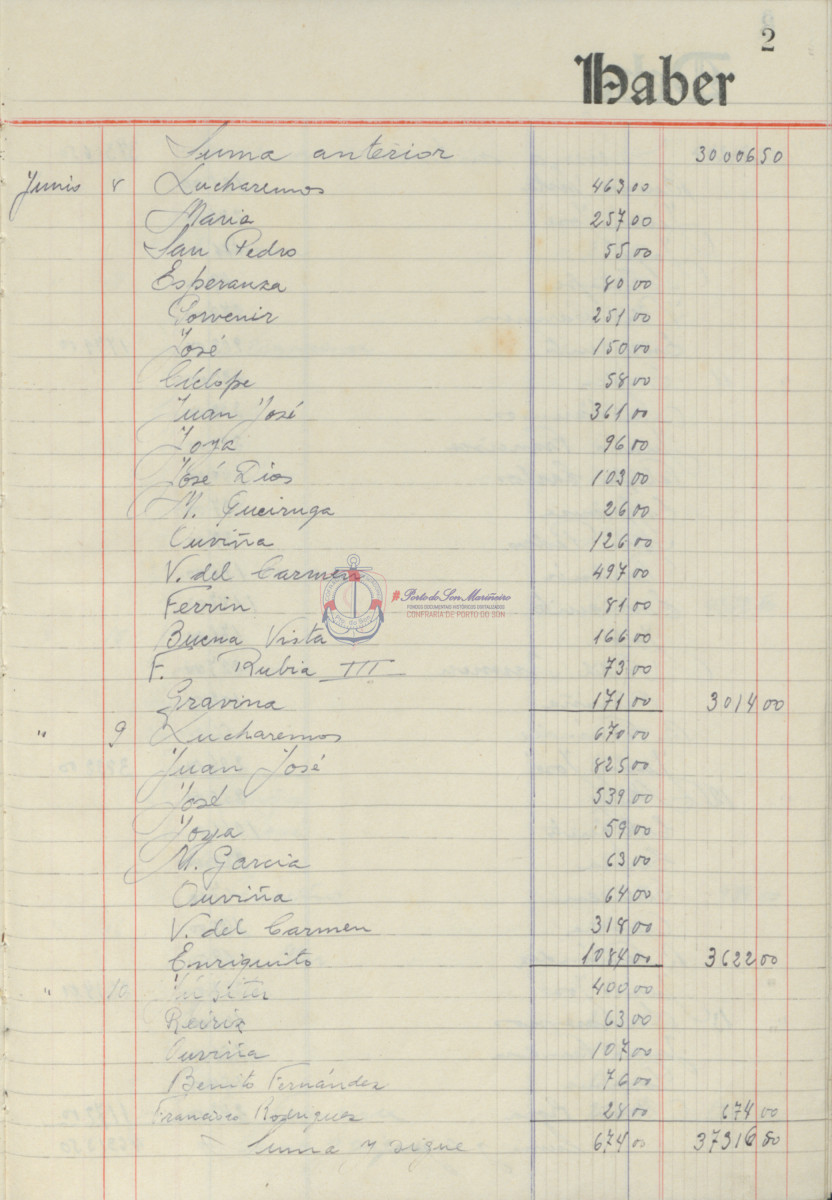 2
Haber
Suma anterior 30006 50
Junio 8 Lucharemos 463 00
Maria 257 00
San Pedro 55 00
Esperanza 80 00
Porvenir 251 00
José 150 00
Ciclope 58 00
Juan José 361 00
Joya 96 00
José Rios 103 00
M. Queiruga 26 00
Ouviña 126 00
V. del Carmen 497 00
#PortodoSonMariñeiro
FONDOS DOCUMENTAIS HISTÓRICOS DIXITALIZADOS
CONFRARIA DE PORTO DO SON
Ferrin 81 00
Buena Vista 166 00
F. Rubia III 73 00
Gravina 171 00 3014 00
" 9 Lucharemos 670 00
Juan José 825 00
José 539 00
Joya 59 00
M. Garcia 63 00
Ouviña 64 00
V. del Carmen 318 00
Enriquito 1084 00 3622 00
" 10 400 00
Reiriz 63 00
Ouviña 107 00
Benito Fernández 76 00
Francisco Rodriguez 28 00 674 00
Suma y sigue 674 00 37316 50